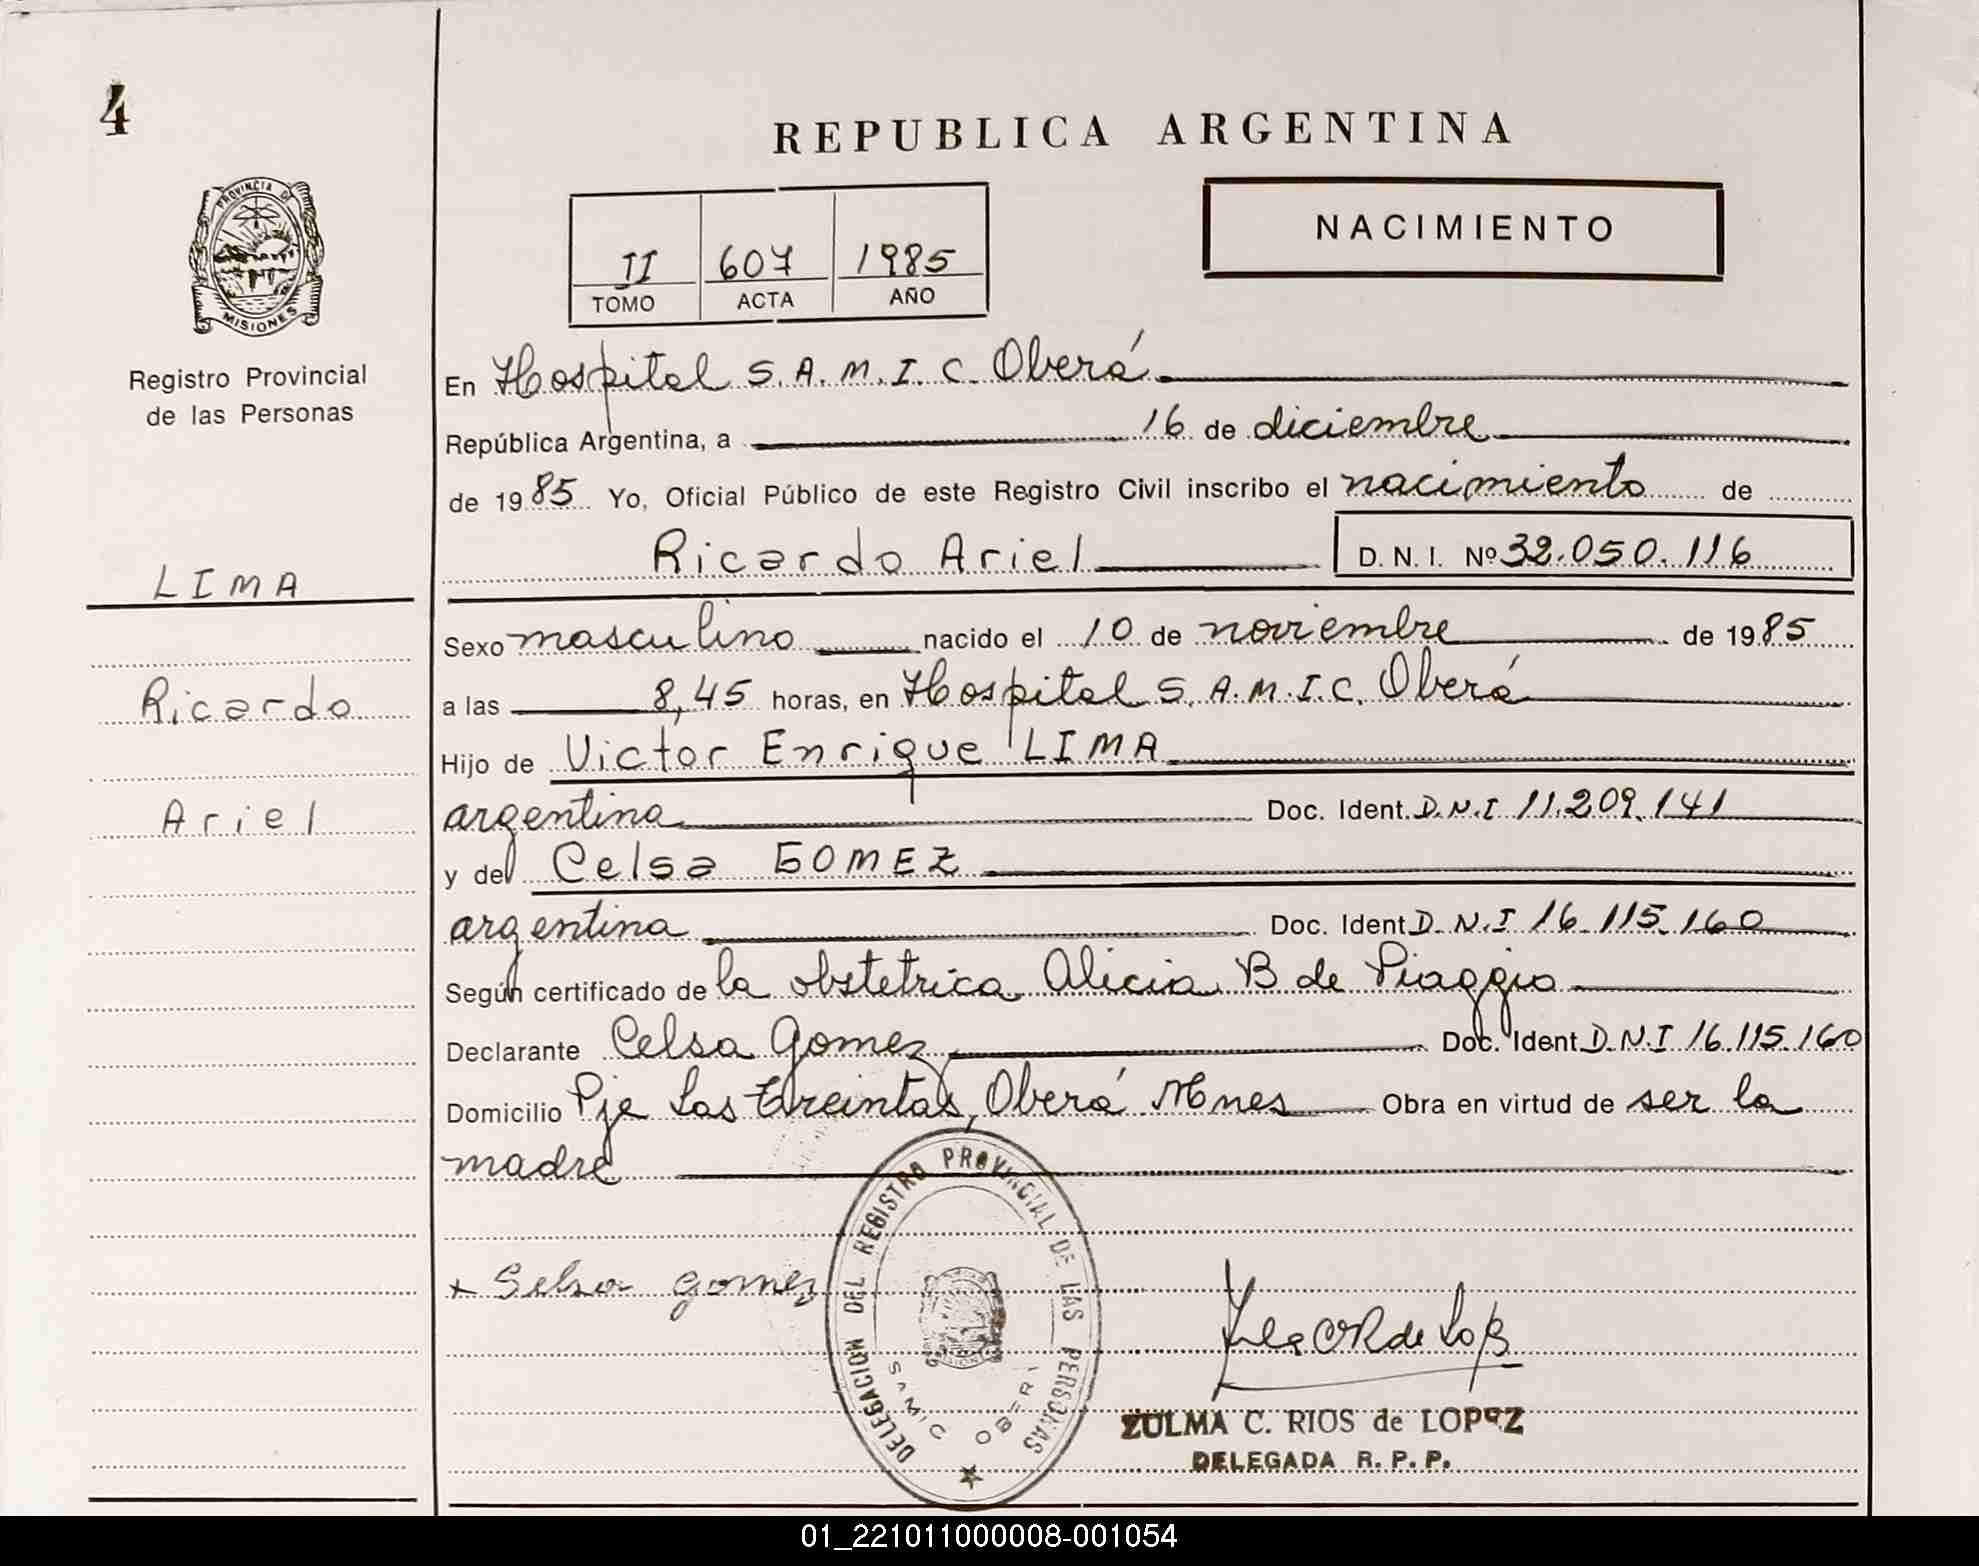 4
REPUBLICA ARGENTINA
PROVINCIA DE
MISIONES
Registro Provincial
de las Personas
II 607 1985
TOMO ACTA AÑO
NACIMIENTO
En Hospital S.A.M.I.C. Oberá
República Argentina, a 16 de diciembre
de 1985 Yo, Oficial Público de este Registro Civil inscribo el nacimiento de
Ricardo Ariel D. N. I. Nº 32.050.116
LIMA
Ricardo
Ariel
Sexo masculino nacido el 10 de noviembre de 1985
a las 8,45 horas, en Hospital S.A.M.I.C. Oberá
Hijo de Victor Enrique LIMA
argentina Doc. Ident. D.N.I 11.209.141
y de Celsa GOMEZ
argentina Doc. Ident D.N.I 16.115.160
Según certificado de la obstetrica Alicia B de Piaggio
Declarante Celsa Gomez Doc. Ident D.N.I 16.115.160
Domicilio Pje Las treintas, Oberá Mnes Obra en virtud de ser la
madre
+ Selsa gomez
DELEGACION DEL REGISTRO PROVINCIAL DE LAS PERSONAS
SAMIC OBERA
ZULMA C. RIOS de LOPEZ
DELEGADA R. P. P.
01_221011000008-001054